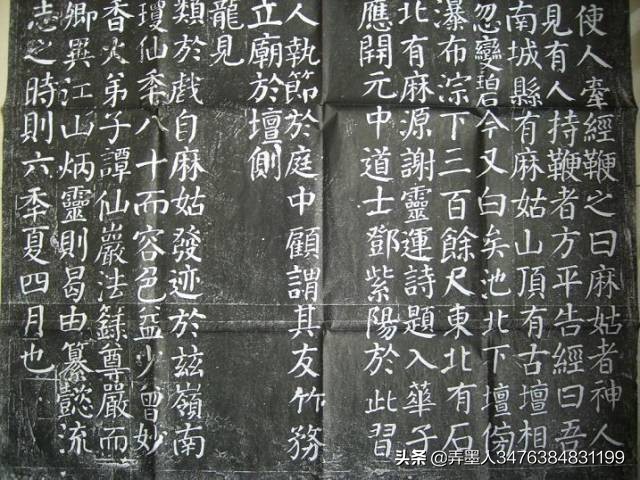 使人牽經鞭之曰麻姑者神人
見有人持鞭者方平告經曰吾
南城縣有麻姑山頂有古壇相
忽變碧今又白矣池北下壇傍
瀑布淙下三百餘尺東北有石
北有麻源謝靈運詩題入華子
應開元中道士鄧紫陽於此習
人執節於庭中顧謂其友竹務
立廟於壇側
龍見
類於戲自麻姑發迹於茲嶺南
瓊仙秊八十而容色益少曾妙
香火弟子譚仙巖法籙尊嚴而
卿異江山炳靈則曷由纂懿流
志之時則六秊夏四月也
头条 @弄墨人3476384831199